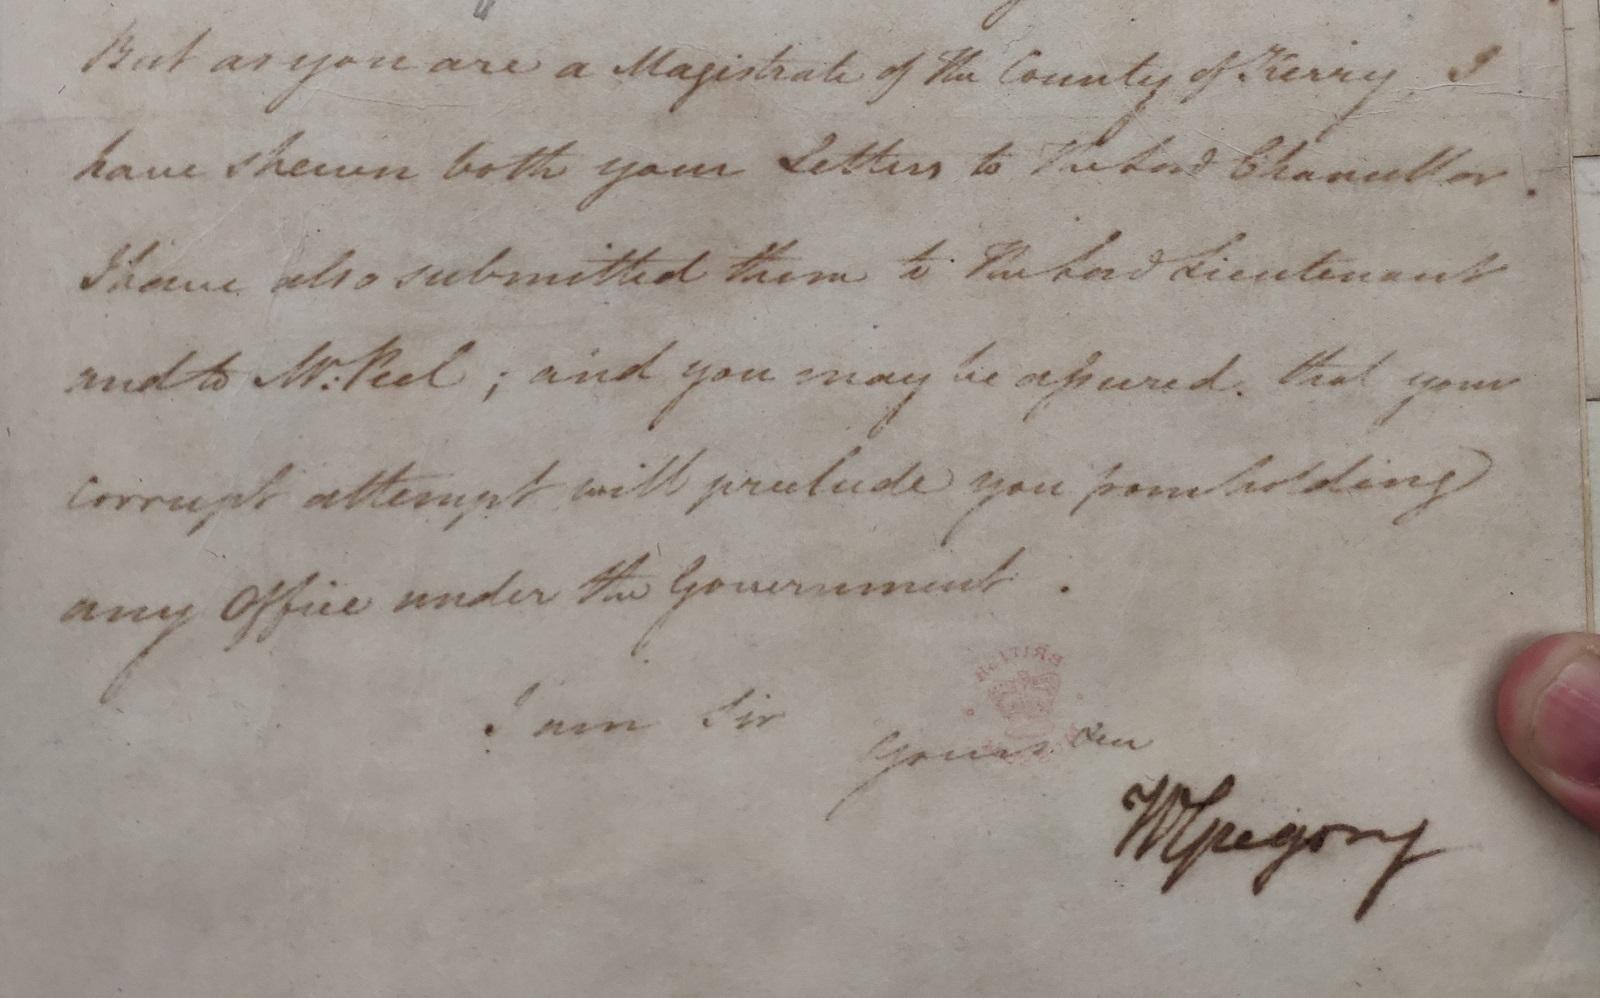 But as you are a Magistrate of the County of Kerry I
have shewn both your Letters to The Lord Chancellor.
I have also submitted them to The Lord Lieutenant
and to Mr. Peel; and you may be assured that your
corrupt attempt will preclude you from holding
any Office under the Government.
I am Sir
Yours &c
BRITISH
WGregory